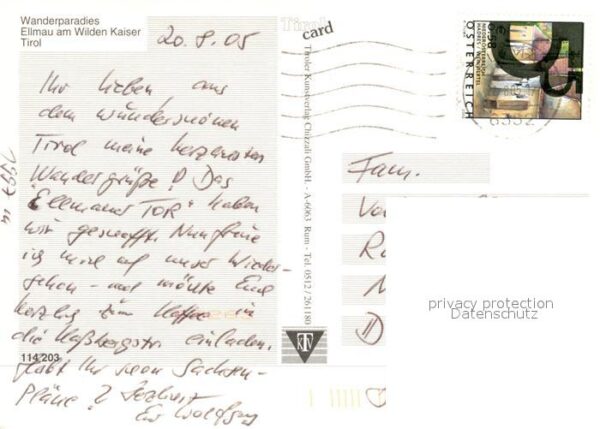 Wanderparadies
Ellmau am Wilden Kaiser
Tirol
20.8.05
Ihr lieben, aus
dem wunderschönen
Tirol meine herzlichsten
Wandergrüße! Das
"Ellmauer Tor" haben
wir geschafft. Nun freue
ich mich auf unser Wieder-
sehen - und möchte Euch
herzlich zum Kaffee in
die Haßbergstr. einladen.
Habt Ihr schon Sachsen-
Pläne?
Euer Wolfgang
114 203
1997 m
Tirol
card
Tiroler Kunstverlag Chizzali GmbH. - A-6063 Rum - Tel. 0512/261180
KTV
0,58
ÖSTERREICH
6352
Fam.
privacy protection
Datenschutz